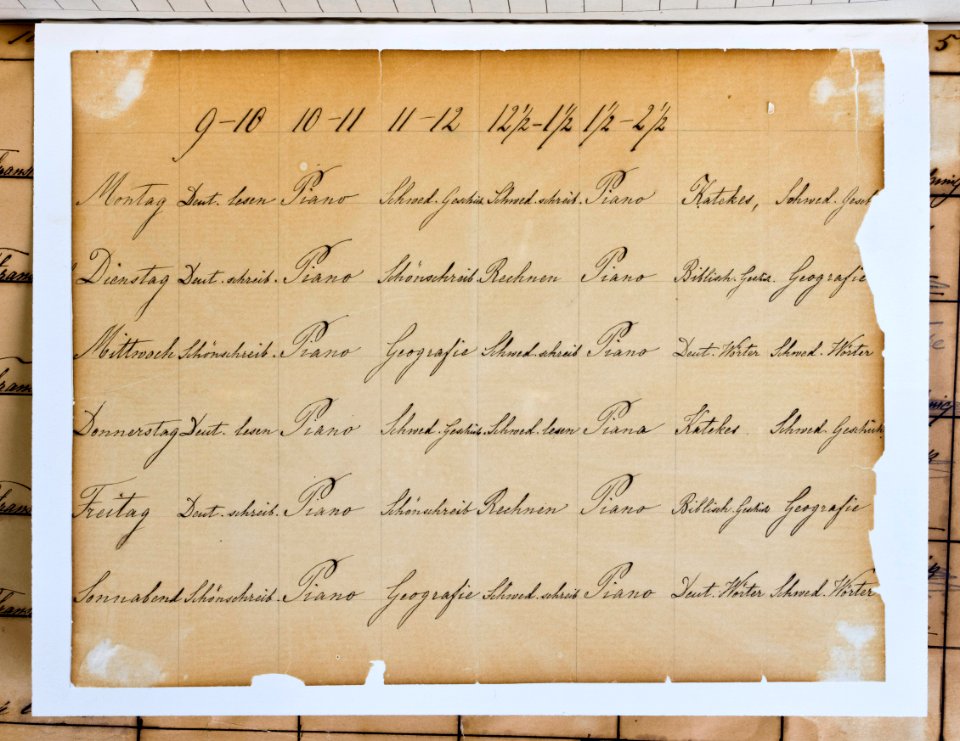 9-10 10-11 11-12 12½-1½ 1½-2½
Montag Deut. lesen Piano Schwed. Geschich Schwed. schreib. Piano Katekes, Schwed. Gesch
Dienstag Deut. schreib. Piano Schönschreib. Rechnen Piano Biblisch. Gesch. Geografie
Mittwoch Schönschreib. Piano Geografie Schwed. schreib Piano Deut. Wörter Schwed. Wörter
Donnerstag Deut. lesen Piano Schwed. Geschich Schwed. lesen Piana Katekes Schwed. Geschich
Freitag Deut. schreib. Piano Schönschreib Rechnen Piano Biblisch. Gesch Geografie
Sonnabend Schönschreib. Piano Geografie Schwed. schreib Piano Deut. Wörter Schwed. Wörter